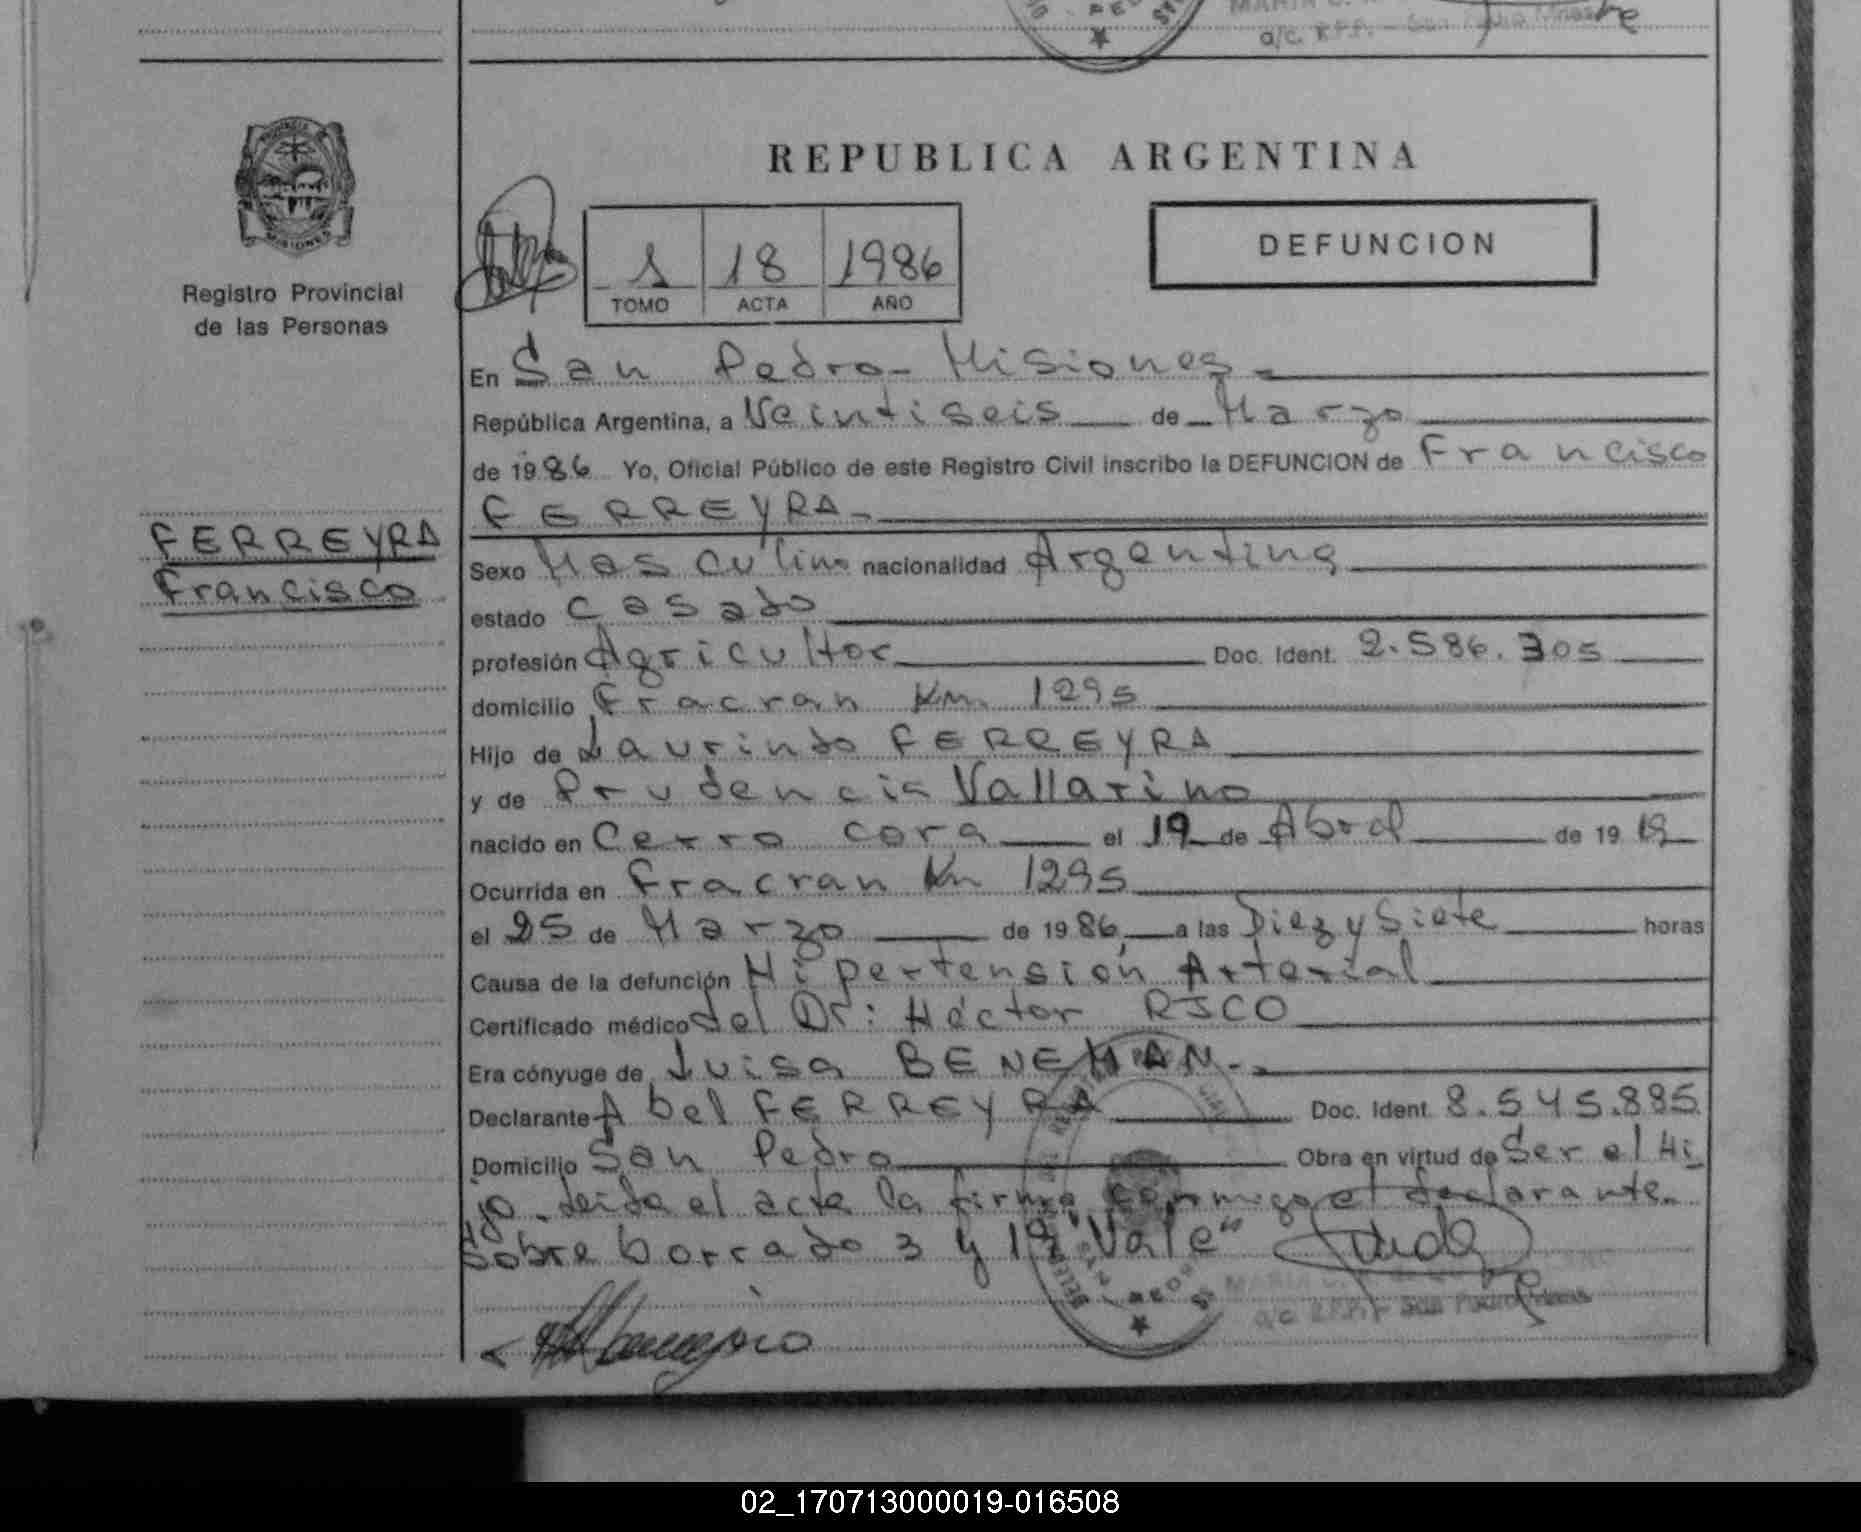 PROVINCIA
MISIONES
Registro Provincial
de las Personas
FERREYRA
Francisco
REPUBLICA ARGENTINA
1 18 1986
TOMO ACTA AÑO
DEFUNCION
En San Pedro - Misiones.
República Argentina, a Veintiseis de Marzo
de 1986 Yo, Oficial Público de este Registro Civil inscribo la DEFUNCION de Francisco
FERREYRA.
Sexo Masculino nacionalidad Argentina
estado Casado
profesión Agricultor Doc. Ident. 2.586.305
domicilio Fracran Km 1295
Hijo de Laurindo FERREYRA
y de Prudencia Vallarino
nacido en Cerro cora el 19 de Abril de 19 19
Ocurrida en Fracran Km 1295
el 25 de Marzo de 1986, a las Diez y Siete horas
Causa de la defunción Hipertensión Arterial
Certificado médico del Dr: Héctor RJCO
Era cónyuge de Luisa BENEMAN.
Declarante Abel FERREYRA Doc. Ident. 8.545.885
Domicilio San Pedro Obra en virtud de Ser el Hi
jo. leida el acta la firma conmigo el declarante.
Sobre borrado 3 y 19 "Vale"
02_170713000019-016508